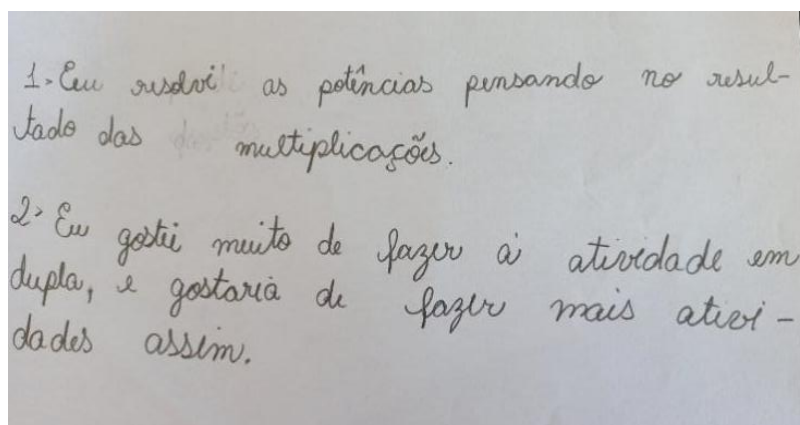 1- Eu resolvi as potências pensando no resul-
tado das multiplicações.
2- Eu gostei muito de fazer à atividade em
dupla, e gostaria de fazer mais ativi-
dades assim.